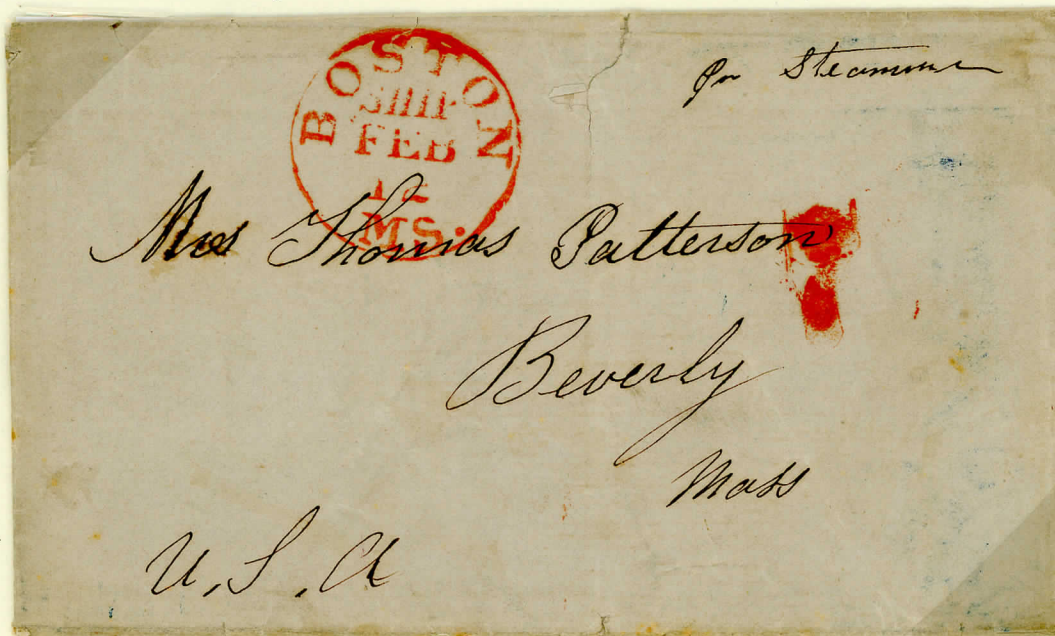 BOSTON
SHIP
FEB
MS.
Per Steamer
Mrs Thomas Patterson
Beverly
Mass
U.S.A